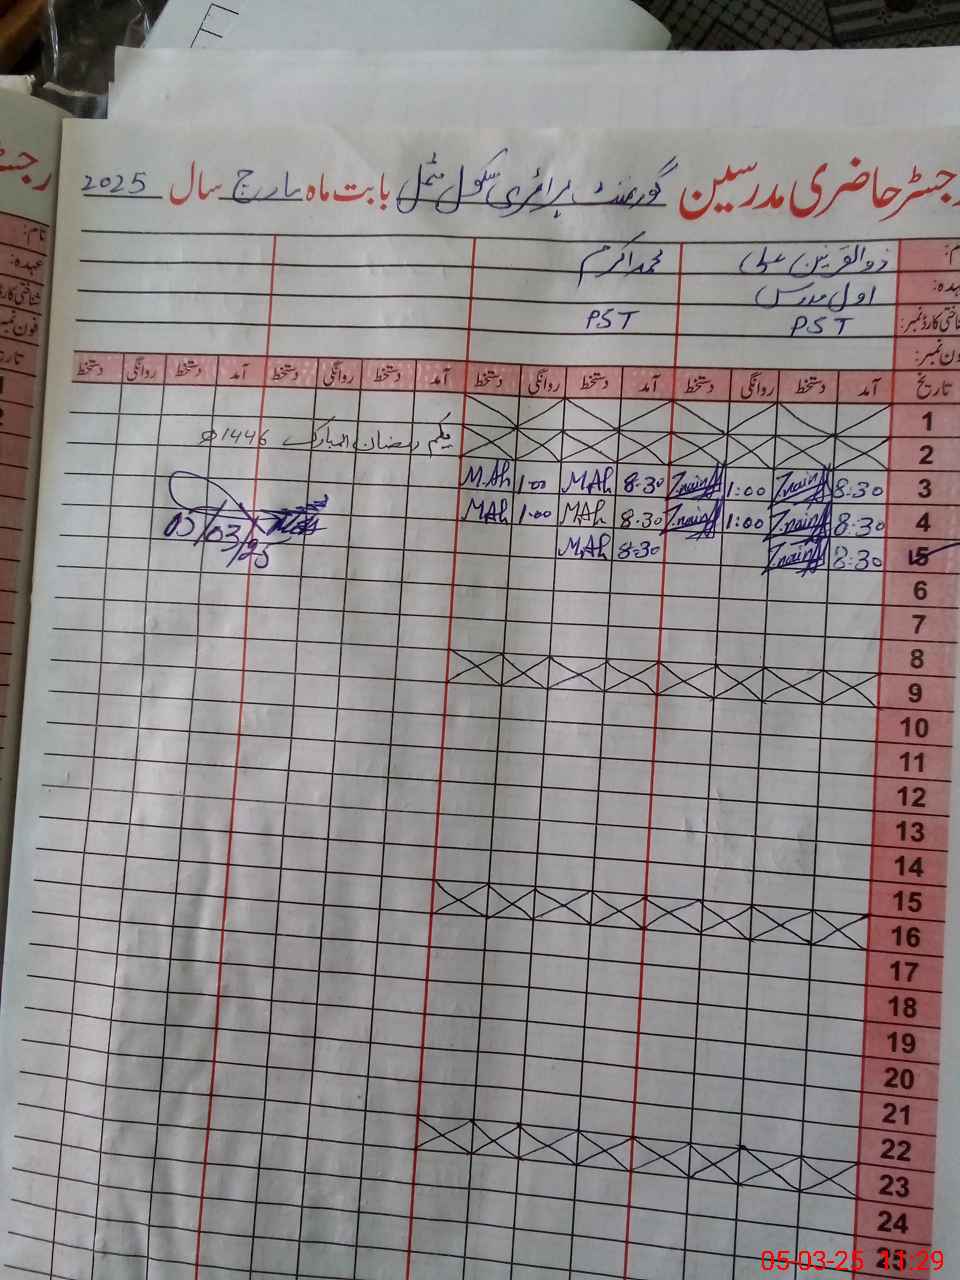 رجسٹر حاضری مدرسین گورنمنٹ پرائمری سکول بابت ماہ مارچ سال 2025
نام:
ذوالقرنین علی
محمد اکرم
عہدہ:
اول مدرس
شناختی کارڈ نمبر:
PST
PST
فون نمبر:
تاریخ آمد دستخط روانگی دستخط آمد دستخط روانگی دستخط آمد دستخط روانگی دستخط آمد دستخط روانگی دستخط
1
2 یکم رمضان المبارک 1446ھ
3 8:30 Znain 1:00 Znain 8:30 MAh 1:00 MAh
4 8:30 Znain 1:00 Znain 8:30 MAh 1:00 MAh
5 8:30 Znain 8:30 MAh
05/03/25
6
7
8
9
10
11
12
13
14
15
16
17
18
19
20
21
22
23
24
25
05-03-25 11:29